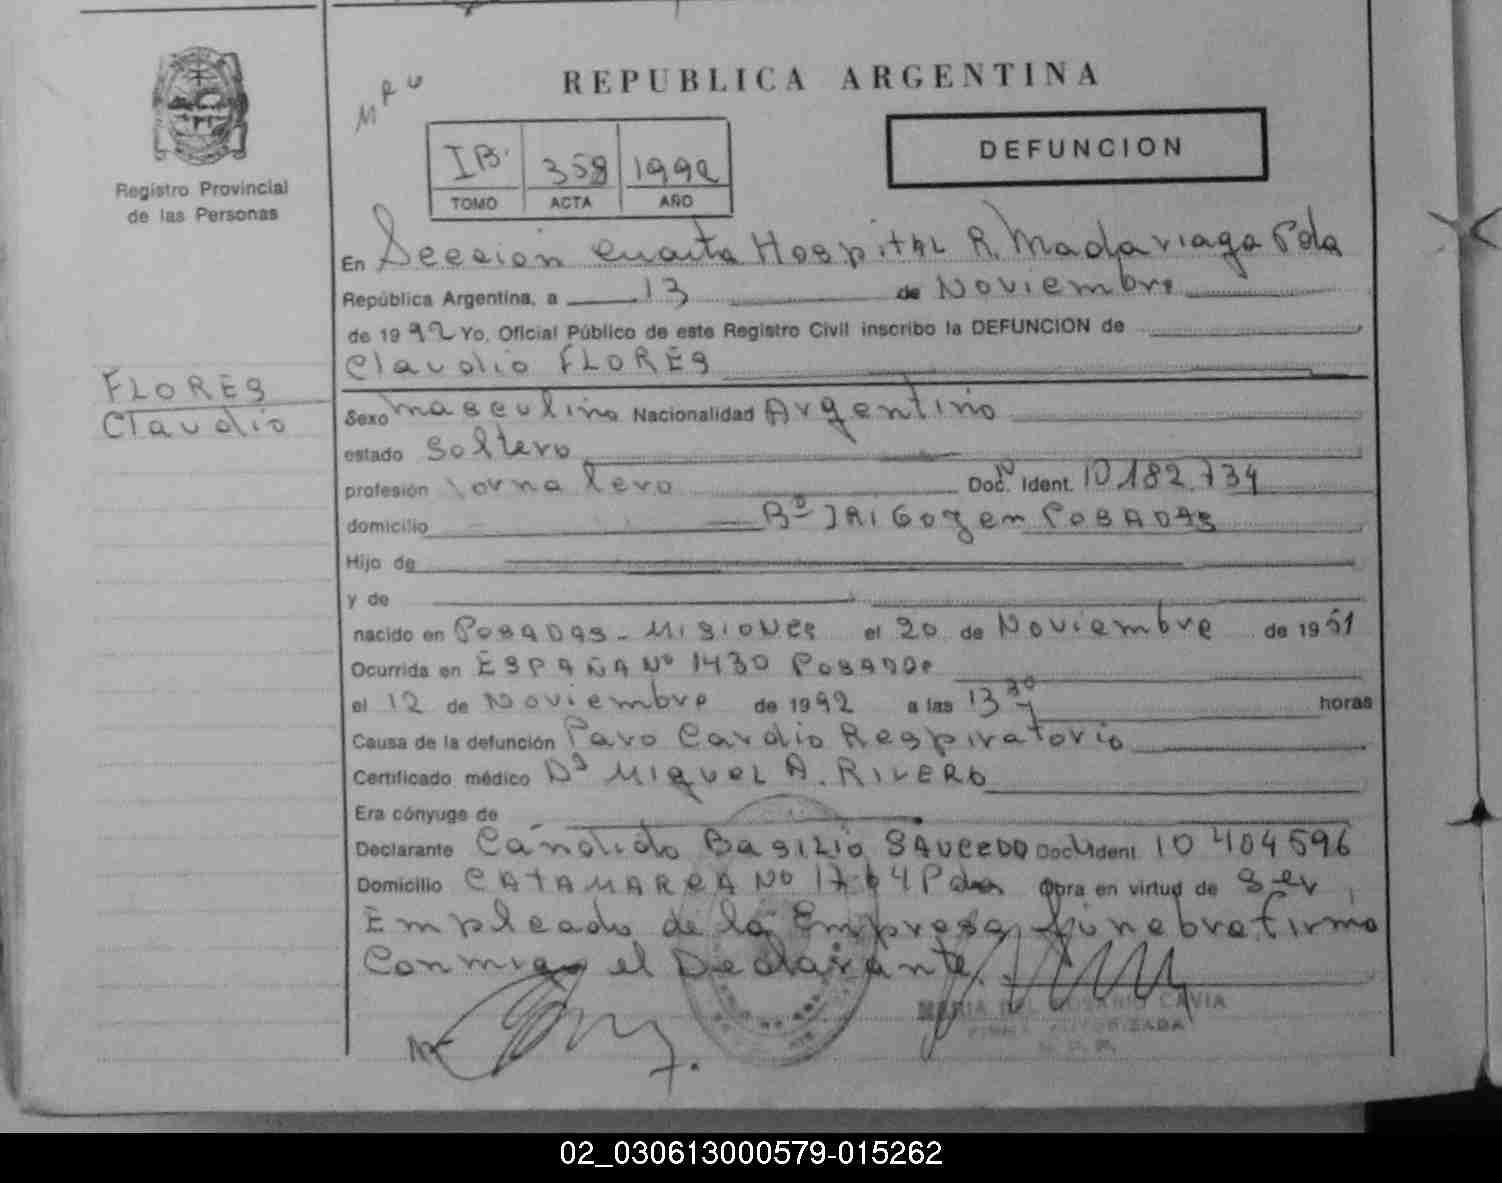 REPUBLICA ARGENTINA
MRU
IB. 358 1992
TOMO ACTA AÑO
DEFUNCION
Registro Provincial
de las Personas
En Sección Cuarta Hospital R. Madariaga Pdas
República Argentina, a 13 de Noviembre
de 1992 Yo, Oficial Público de este Registro Civil inscribo la DEFUNCION de
Claudio FLORES
FLORES
Claudio
Sexo masculino Nacionalidad Argentino
estado Soltero
profesión Jornalero Doc. Ident. 10.182.734
domicilio Bº IRIGOYen POSADAS
Hijo de
y de
nacido en POSADAS - MISIONES el 20 de Noviembre de 1951
Ocurrida en ESPAÑA Nº 1430 POSADAS
el 12 de Noviembre de 1992 a las 13 30 horas
Causa de la defunción Paro Cardio Respiratorio
Certificado médico Dr MIGUEL A. RIVERO
Era cónyuge de
Declarante Cándido Basilio SAUCEDO Doc. Ident. 10 404596
Domicilio CATAMARCA Nº 1764 Pdas Obra en virtud de Ser
Empleado de la Empresa fúnebre firma
Conmigo el Declarante.
MARIA DEL ROSARIO CAVIA
FIRMA AUTORIZADA
02_030613000579-015262